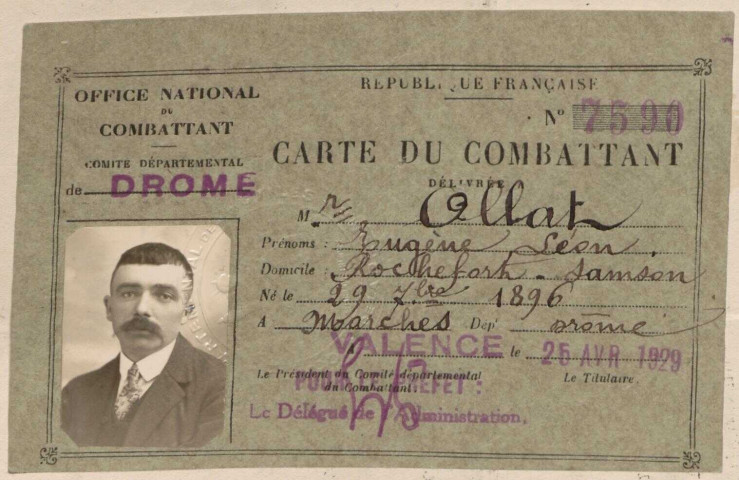 OFFICE NATIONAL
DU
COMBATTANT
COMITÉ DÉPARTEMENTAL
de DROME
REPUBLIQUE FRANÇAISE
N° 7590
CARTE DU COMBATTANT
DÉLIVRÉE A
M r Ollat
Prénoms : Eugène Léon.
Domicile : Rochefort-Samson
Né le 29 7bre 1896
A Marches Dep' Drôme
A VALENCE le 25 AVR 1929
Le Président du Comité départemental
du Combattant:
Le Titulaire.
POUR LE PREFET :
Le Délégué de l'Administration.